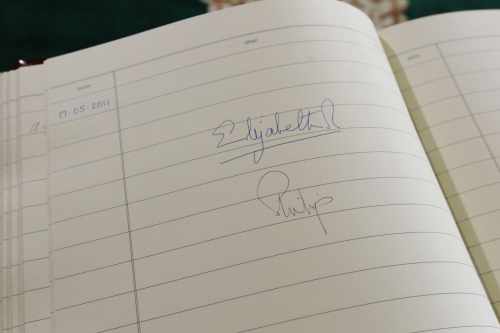 17.05.2011
Elizabeth R
Philip